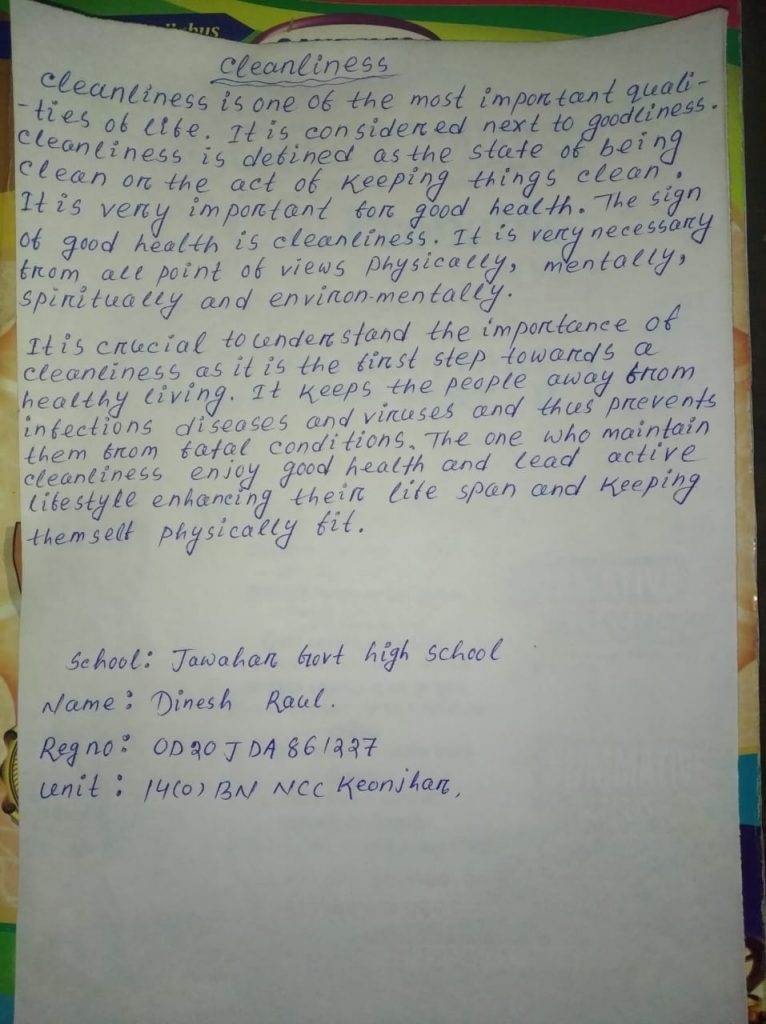 Cleanliness
Cleanliness is one of the most important quali-
-ties of life. It is considered next to goodliness.
Cleanliness is defined as the state of being
clean or the act of keeping things clean.
It is very important for good health. The sign
of good health is cleanliness. It is very necessary
from all point of views physically, mentally,
spiritually and environ-mentally.
It is crucial to understand the importance of
cleanliness as it is the first step towards a
healthy living. It keeps the people away from
infections diseases and viruses and thus prevents
them from fatal conditions. The one who maintain
cleanliness enjoy good health and lead active
lifestyle enhancing their life span and keeping
themself physically fit.
School: Jawahar Govt high school
Name: Dinesh Raul.
Reg no: OD20JDA861227
Unit: 14(O) BN NCC Keonjhar,